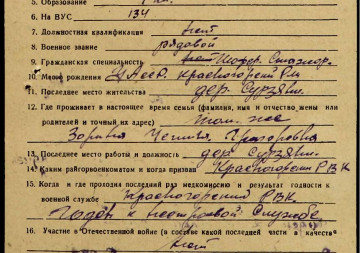 5. Образование
6. На ВУС 134
7. Должностная квалификация нет
8. Военное звание рядовой
9. Гражданская специальность
10. Место рождения УАССР. Красногорский р-н
11. Последнее место жительства дер.
12. Где проживает в настоящее время семья (фамилия, имя и отчество жены или
родителей и точный их адрес) там же
13. Последнее место работы и должность дер.
14. Каким райгорвоенкоматом и когда призван Красногорским РВК
15. Когда и где проходил последний раз медкомиссию и результат годности к
военной службе Красногорский РВК.
Годен к нестроевой службе
16. Участие в Отечественной войне (в составе какой последней части и в качестве
нет